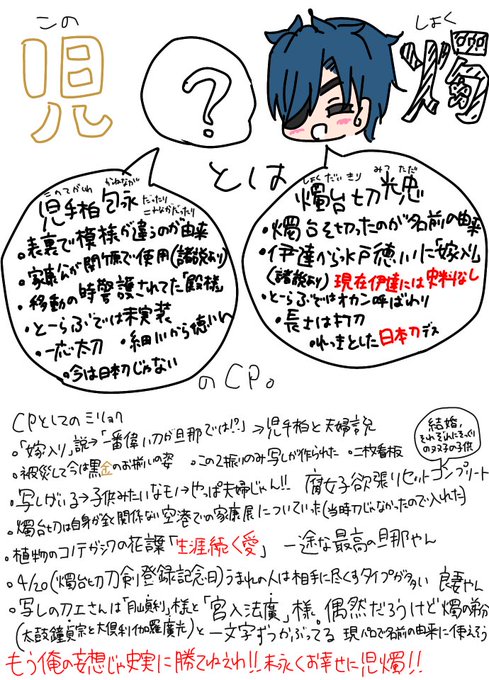 この
児
?
しょく
燭
とは
このてがしわ かねなが
児手柏包永
だったり
こなかだったり
・表裏で模様が違うのが由来
・家康公が関ヶ原で使用(諸説より)
・移動の時警護されてた「殿様」
・とーらぶでは未実装
・一応太刀 ・細川から徳川へ
・今は日本刀じゃない
しょくだいきり みつただ
燭台切光忠
・燭台を切ったのが名前の由来
・伊達から水戸徳川に「嫁入り」
(諸説より) 現在伊達には史料なし
・とーらぶではオカン呼ばわり
・長さは
・れっきとした日本刀デス
のCP。
CPとしてのミリョク
・「嫁入り」説→「一番偉い刀が旦那では!?」→児手柏と夫婦説
結婚。
それぞれにそっくり
の双子の子供
・被災して今は黒金のお揃いの姿 ・この2振りのみ写しが作られた ・二枚看板
・写しがいる→子供みたいなモノ→やっぱ夫婦じゃん!! 腐女子欲張りセットコンプリート
・燭台切は自身が全く関係ない空港での家康展についていった(当時刀じゃなかったので入れた)
・植物のコノテガシワの花言葉「生涯続く愛」 一途な最高の旦那やん
・4/20(燭台切刀剣登録記念日)うまれの人は相手に尽くすタイプが多い 良妻やん
・写しの刀工さんは「月山貞利」様と「宮入法廣」様。偶然だろうけど燭の
(太鼓鐘貞宗と大倶利伽羅廣光)と一文字ずつかぶってる 現パロで名前の由来に使えそう
もう俺の妄想じゃ史実に勝てねえわ!!末永くお幸せに児燭!!